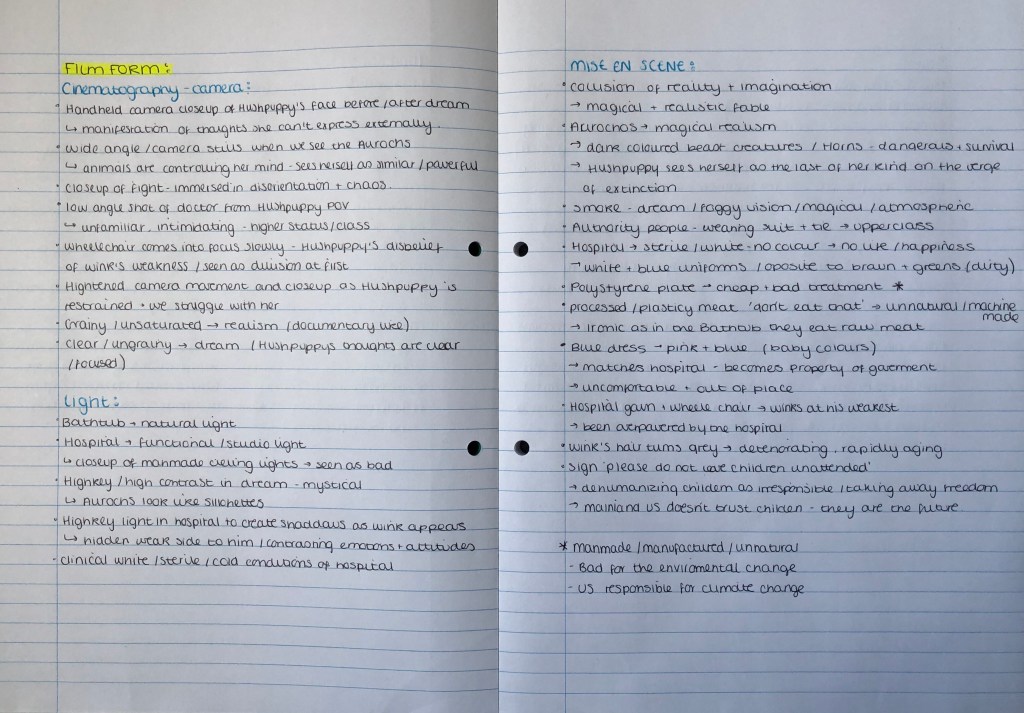 FILM FORM:
Cinematography - camera:
· Handheld camera closeup of Hushpuppy's face before / after dream
↳ manifestation of thoughts she can't express externally.
· wide angle / camera stills when we see the Aurochs
↳ animals are controlling her mind - sees herself as similar / powerful
· closeup of fight - immersed in disorientation + chaos.
· low angle shot of doctor from Hushpuppy POV
↳ unfamiliar, intimidating - higher status/class
· wheelchair comes into focus slowly - Hushpuppy's disbelief
of wink's weakness / seen as dillusion at first
· Hightened camera movement and closeup as Hushpuppy is
restrained · we struggle with her
· Grainy / unsaturated → realism (documentary like)
· clear / ungrainy → dream / Hushpuppys thoughts are clear
/ focused)
Light:
· Bathtub → natural light
· Hospital → functional / studio light
↳ closeup of manmade cieling lights → seen as bad
· Highkey / high contrast in dream - mystical
↳ Aurochs look like silhettes
· Highkey light in hospital to create shaddows as wink appears
↳ hidden weak side to him / contrasting emotions + attitudes
- clinical white / sterile / cold conditions of hospital
MISE EN SCENE:
· collision of reality + imagination
→ magical + realistic fable
· Aurochs → magical realism
→ dark coloured beast creatures / Horns - dangerous + survival
→ Hushpuppy sees herself as the last of her kind on the verge
of extinction
· smoke - dream / foggy vision / magical / atmospheric
· Authority people - wearing suit + tie → upperclass
· Hospital → sterile / white - no colour → no life / happiness
→ white + blue uniforms / oposite to brown + greens (dirty)
· Polystyrene plate → cheap + bad treatment *
· processed / plasticy meat 'don't eat that' → unnatural / machine made
→ Ironic as in the Bathtub they eat raw meat
· Blue dress → pink + blue (baby colours)
→ matches hospital - becomes property of goverment
→ uncomfortable + out of place
· Hospital gown + wheele chair → winks at his weakest
→ been overpowered by the hospital
· wink's hair turns grey → deteriorating, rapidly aging
· sign 'please do not leave children unattended'
→ dehumanizing childern as irresponsible / taking away freedom
→ mainland US doesn't trust childen - they are the future
* manmade / manufactured / unnatural
- Bad for the enviromental change
- US responsible for climate change